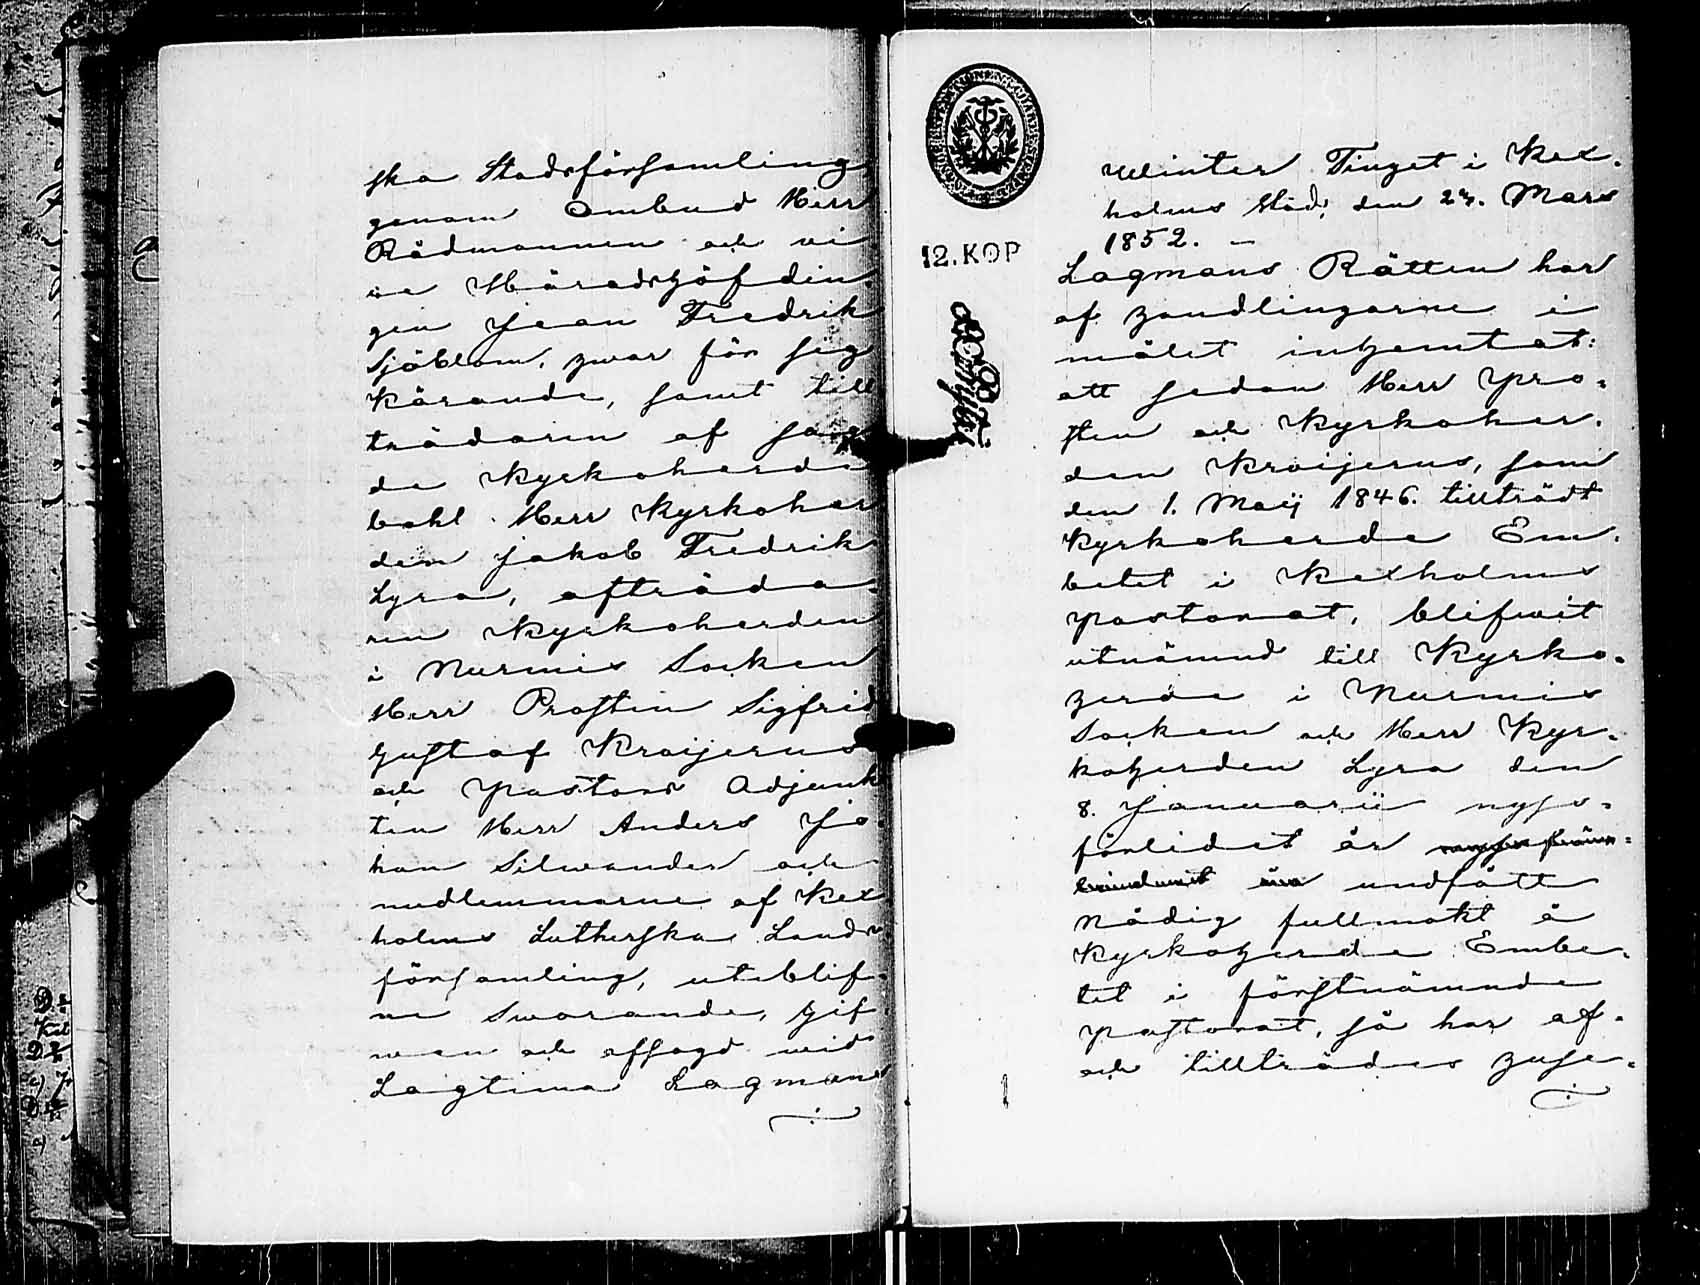 ska Stadsförsamling
genom Ombud Herr
Rådmannen och vi
ce Häradshöfdin-
gen Jean Fredrik
Sjöblom, hwar för sig
Kärande, samt till
trädaren af
de Kyrkoherde
bohl Herr Kyrkoher
den Jakob Fredrik
Lyra, afträda-
ren Kyrkoherden
i Nurmis Socken
Herr Prosten Sigfrid
Gustaf Kroijerus
och Pastors Adjunk
ten Herr Anders Jo-
han Silwander och
medlemmarne af Kex
holms Lutherska Lands
församling, uteblif-
ne Swarande, gif
wen och afsagd wid
Lagtima Lagmans
Winter Tinget i Kex-
holms Stad, den 24. Mars
1852. –
12. KOP
Lagmans Rätten har
af handlingarne i
målet inhemtat:
att sedan Herr Pro-
sten och Kyrkoher-
den Kroijerus, som
den 1. Maij 1846. tillträdt
Kyrkoherde Em-
betet i Kexholms
Pastorat, blifwit
utnämnd till Kyrko-
herde i Nurmis
Socken och Herr Kyr-
koherden Lyra den
8. Januarii nyss-
förlidet år
undfått
Nådig fullmakt å
Kyrkoherde Embe-
tet i förstnämnde
Pastorat, så har af-
och tillträdes huse-